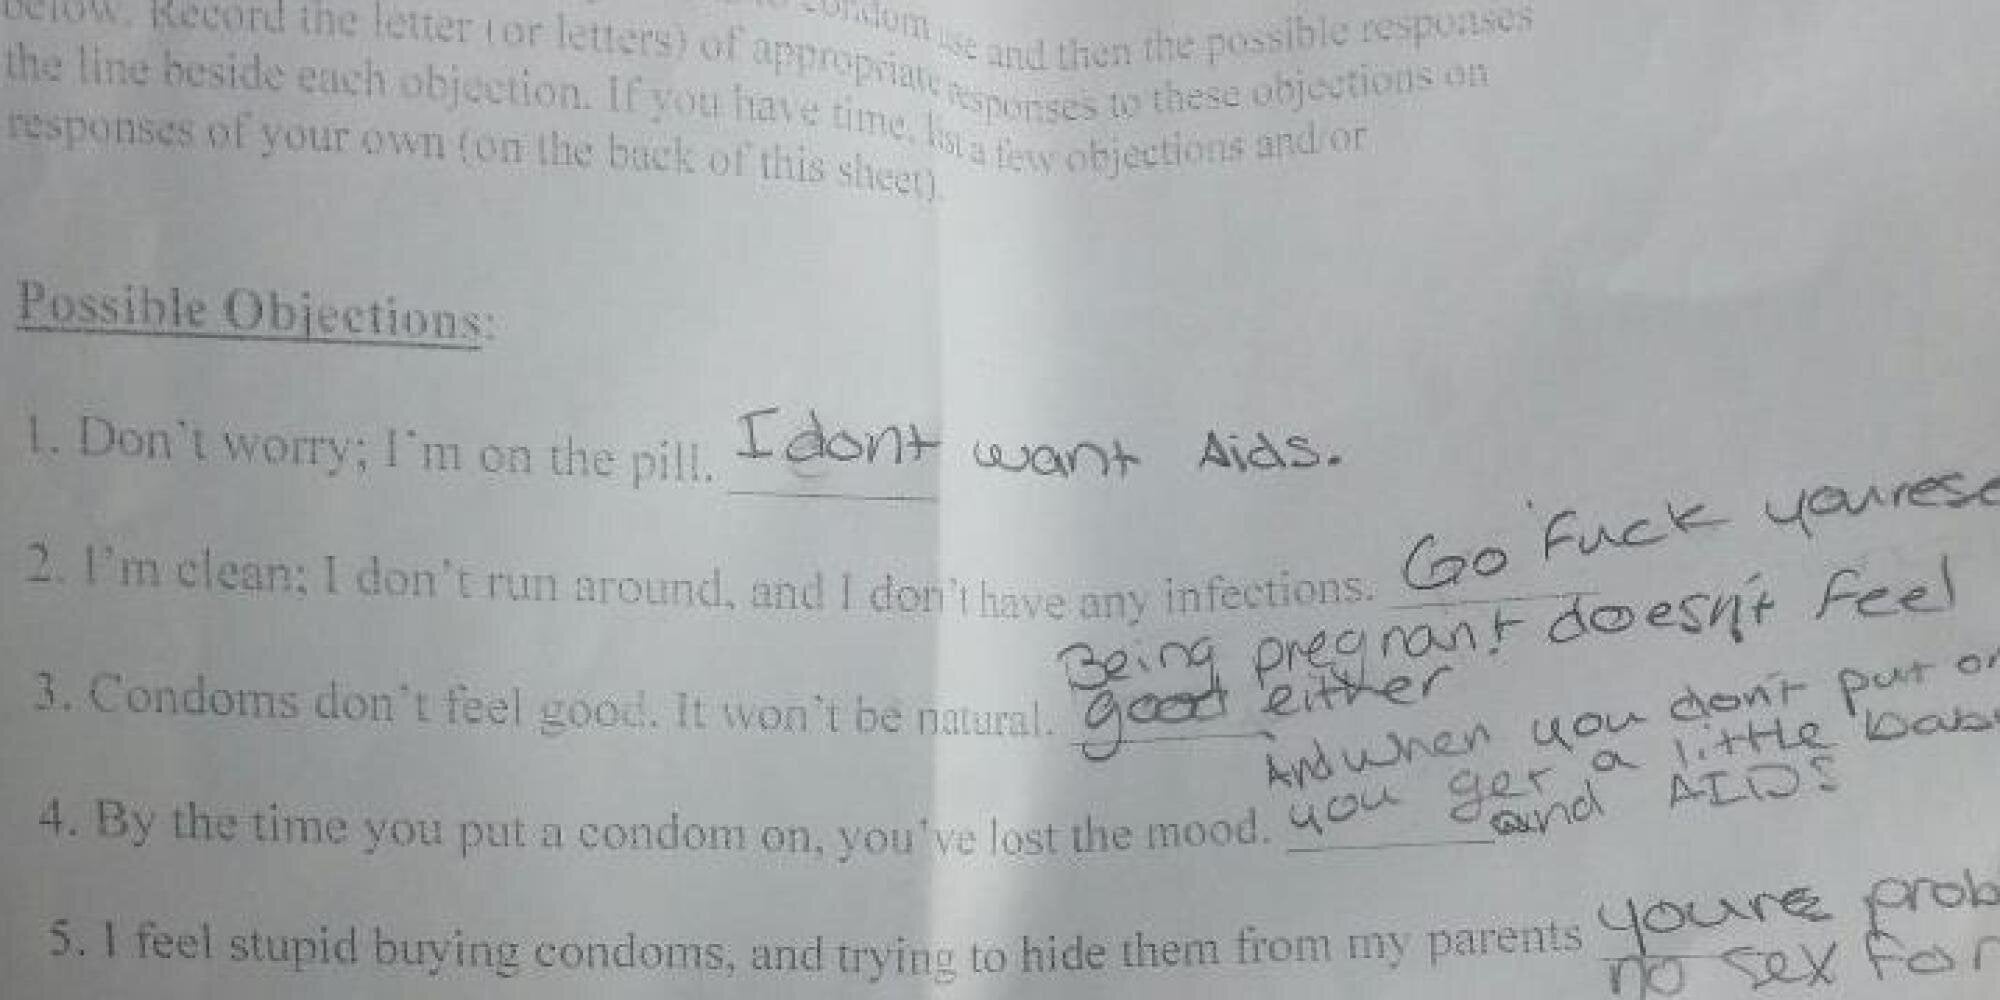 below. Record the letter (or letters) of appropriate responses to these objections on
condom use and then the possible responses
the line beside each objection. If you have time, list a few objections and/or
responses of your own (on the back of this sheet).
Possible Objections:
1. Don't worry; I'm on the pill. I dont want Aids.
2. I'm clean; I don't run around, and I don't have any infections. Go Fuck
Being pregnant doesn't feel
3. Condoms don't feel good. It won't be natural. good either
And when you don't put
you get a little
4. By the time you put a condom on, you've lost the mood. and AIDS
5. I feel stupid buying condoms, and trying to hide them from my parents youre
no sex for